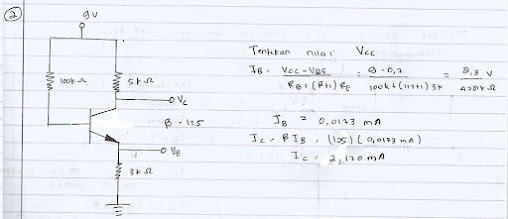 2
9V
100k Ω
5k Ω
Vc
β = 125
VE
3k Ω
Tentukan nilai Vcc
IB = Vcc - VBE / RB + (β+1) RE = 9 - 0,7 / 100k + (125+1) 3k = 8,3 V
IB = 0,0173 mA
Ic = β IB = (125) (0,0173 mA)
Ic = 2,170 mA